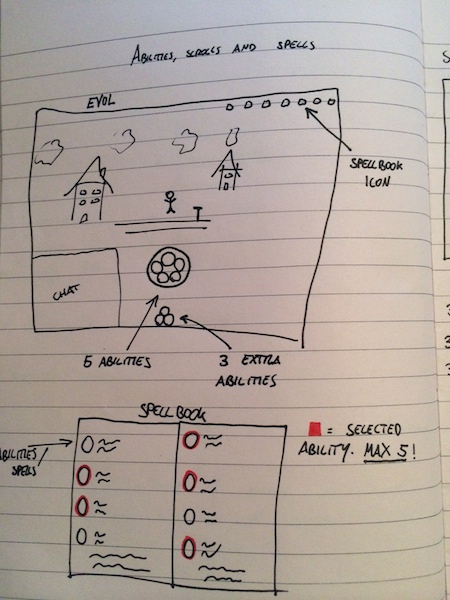 ABILITIES, SCROLLS AND SPELLS
EVOL
SPELLBOOK
ICON
CHAT
5 ABILITIES
3 EXTRA
ABILITIES
SPELLBOOK
ABILITIES/
SPELLS
= SELECTED
ABILITY. MAX 5!